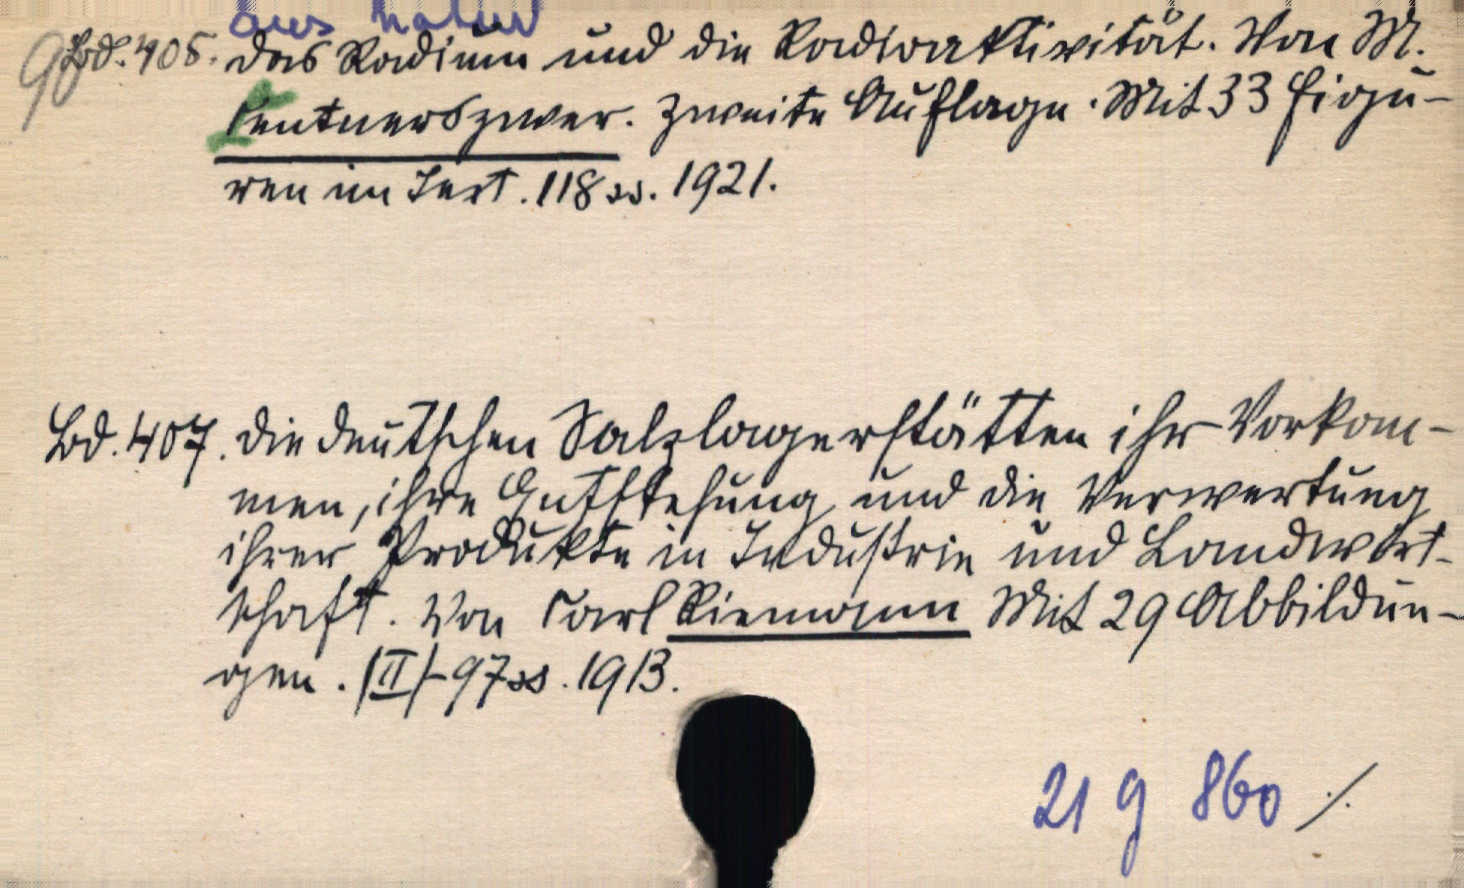 aus Natur
90 Bd. 405. Das Radium und die Radioaktivität. Von M.
Centnerszwer. Zweite Auflage. Mit 33 Figu-
ren im Text. 118 ss. 1921.
Bd. 407. Die deutschen Salzlagerstätten ihr Vorkom-
men, ihre Entstehung und die Verwertung
ihrer Produkte in Industrie und Landwirt-
schaft. Von Carl Riemann Mit 29 Abbildun-
gen. (II)-97 ss. 1913.
21 g 860 ·/.